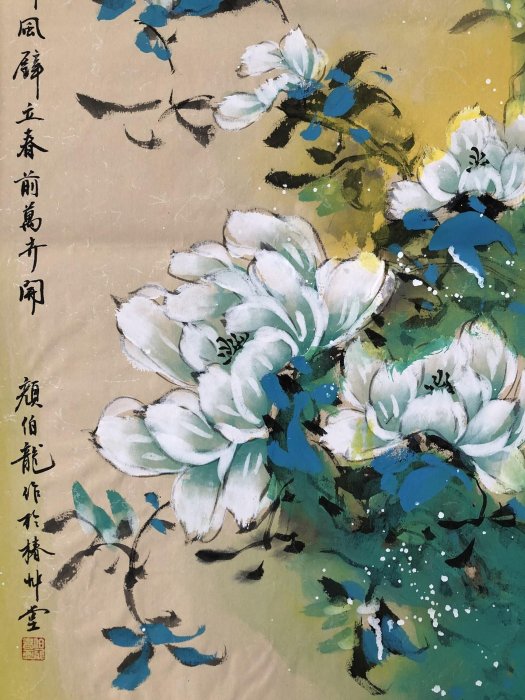 風群立春前萬卉開
顏伯龍作於椿艸堂